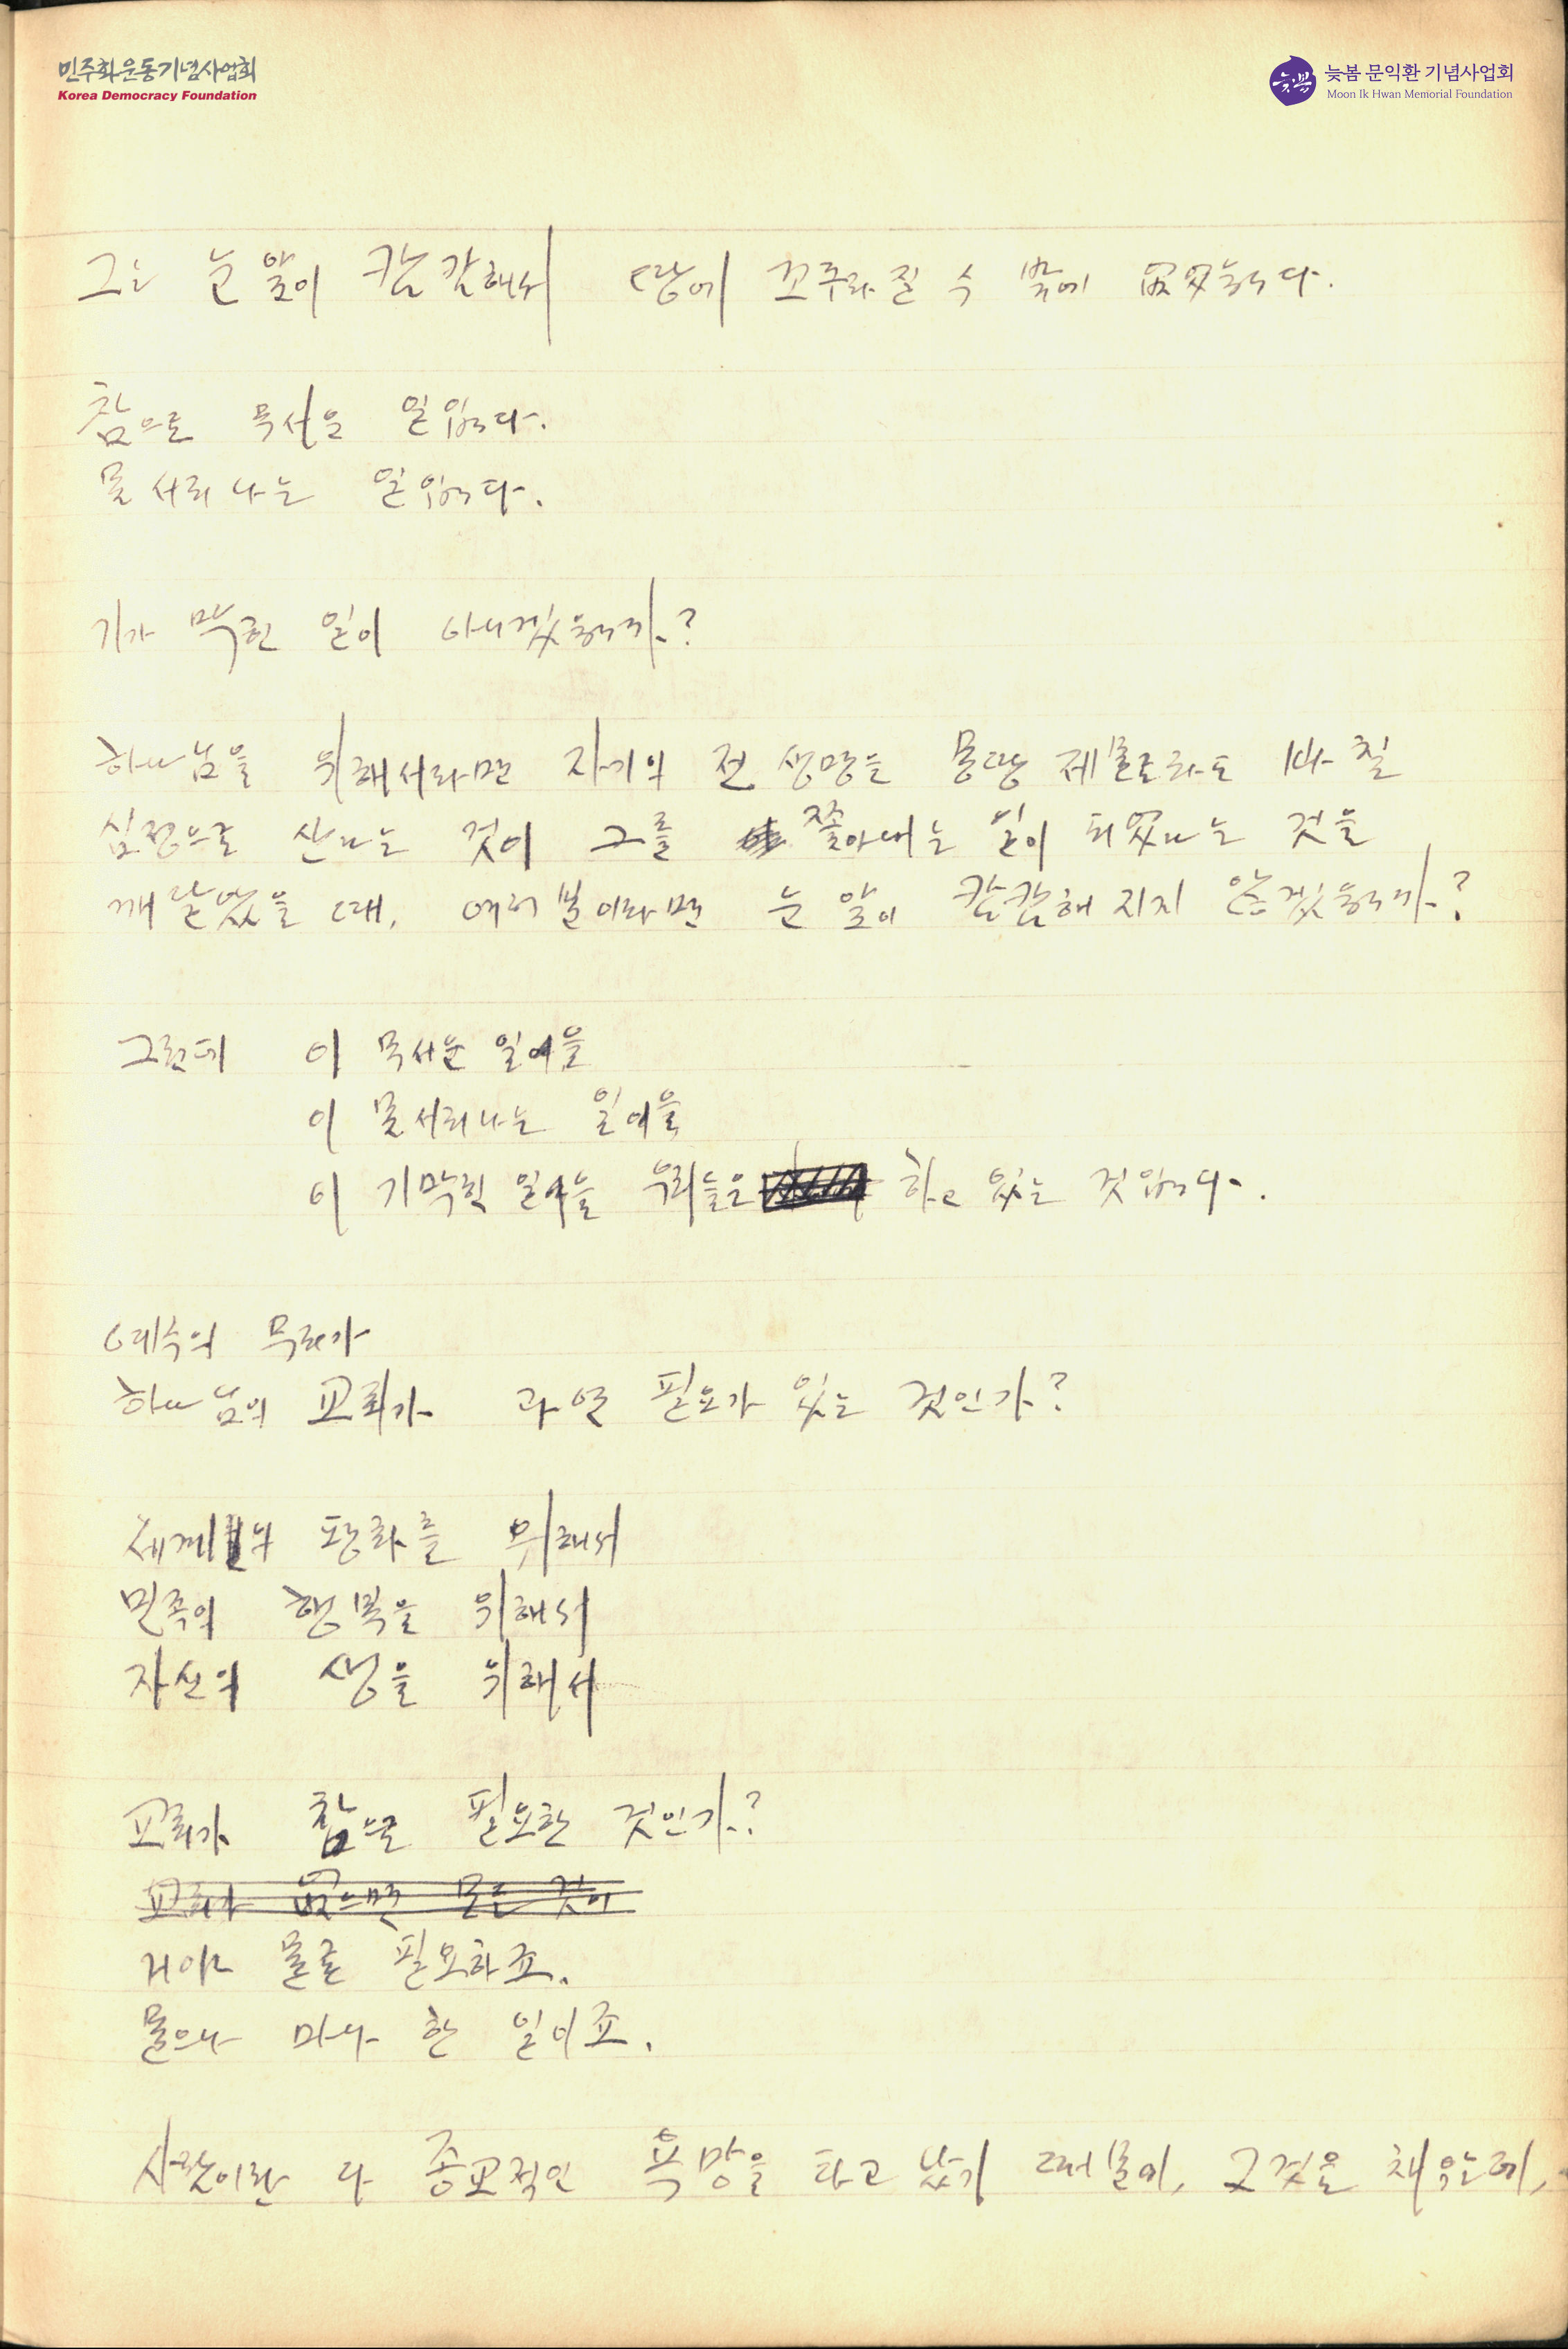 민주화운동기념사업회
Korea Democracy Foundation
늦봄
늦봄 문익환 기념사업회
Moon Ik Hwan Memorial Foundation
그는 눈 앞이 캄캄해서 땅에 꼬꾸라질 수 밖에 없었읍니다.
참으로 무서운 일입니다.
몸서리 나는 일입니다.
기가 막힌 일이 아니겠읍니까?
하나님을 위해서라면 자기의 전 생명을 몽땅 제물로라도 바칠
심정으로 산다는 것이 그를 쫓아내는 일이 되었다는 것을
깨달았을 때, 여러분이라면 눈 앞이 캄캄해 지지 않겠읍니까?
그런데 이 무서운 일을
이 몸서리나는 일을
이 기막힌 일을 우리들은 하고 있는 것입니다.
예수의 무리가
하나님의 교회가 과연 필요가 있는 것인가?
세계의 평화를 위해서
민족의 행복을 위해서
자신의 생을 위해서
교회가 참으로 필요한 것인가?
교회가 없으면 모든 것이
거야 물론 필요하죠.
물으나 마나 한 일이죠.
사람이란 다 종교적인 욕망을 타고 났기 때문에, 그것을 채우는데,